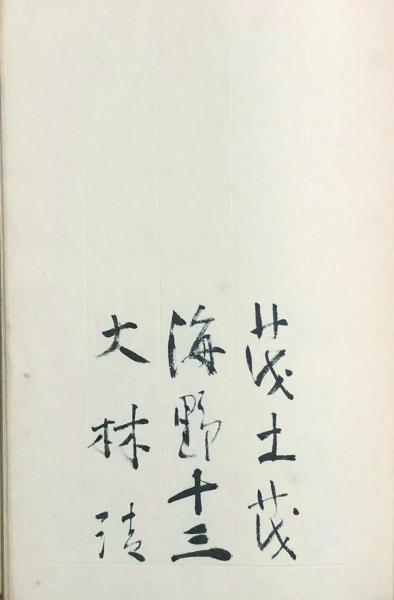 茂土茂
海野十三
大林清